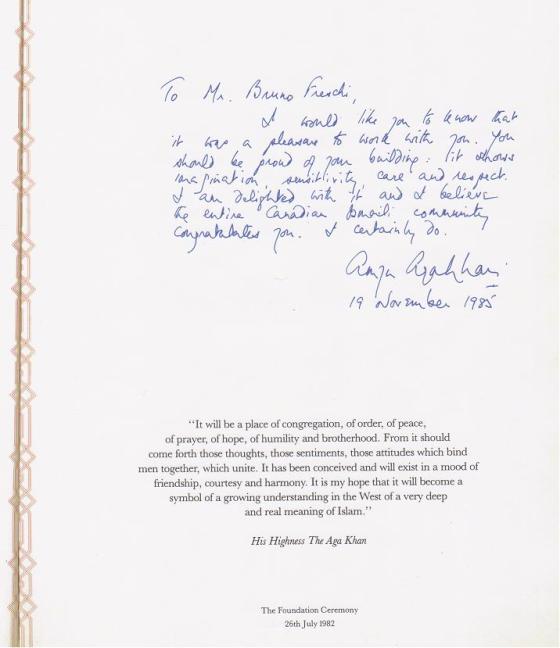 To Mr. Bruno Freschi,
I would like you to know that
it was a pleasure to work with you. You
should be proud of your building: it shows
imagination, sensitivity, care and respect.
I am delighted with it and I believe
the entire Canadian Ismaili community
congratulates you. I certainly do.
Amyn Aga Khan
19 November 1985
“It will be a place of congregation, of order, of peace,
of prayer, of hope, of humility and brotherhood. From it should
come forth those thoughts, those sentiments, those attitudes which bind
men together, which unite. It has been conceived and will exist in a mood of
friendship, courtesy and harmony. It is my hope that it will become a
symbol of a growing understanding in the West of a very deep
and real meaning of Islam.”
His Highness The Aga Khan
The Foundation Ceremony
26th July 1982